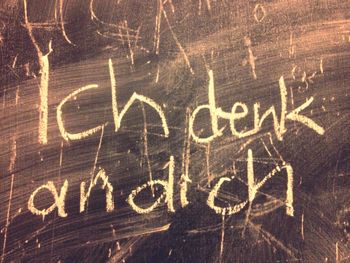 Ich denk
an dich